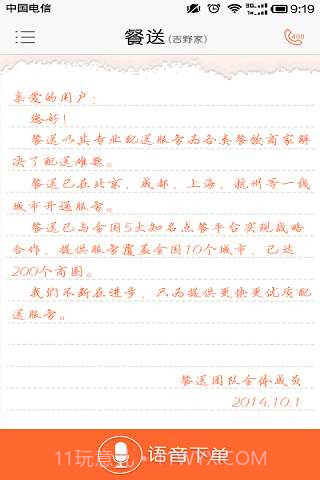 中国电信 9:19
餐送(吉野家) 400
亲爱的用户:
您好!
餐送以其专业配送服务为各类餐饮商家解
决了配送难题。
餐送已在北京、成都、上海、杭州等一线
城市开通服务。
餐送已与全国5大知名点餐平台实现战略
合作,提供服务覆盖全国10个城市,已达
200个商圈。
我们不断在进步,只为提供更快更优质配
送服务。
餐送团队全体成员
2014.10.1
语音下单